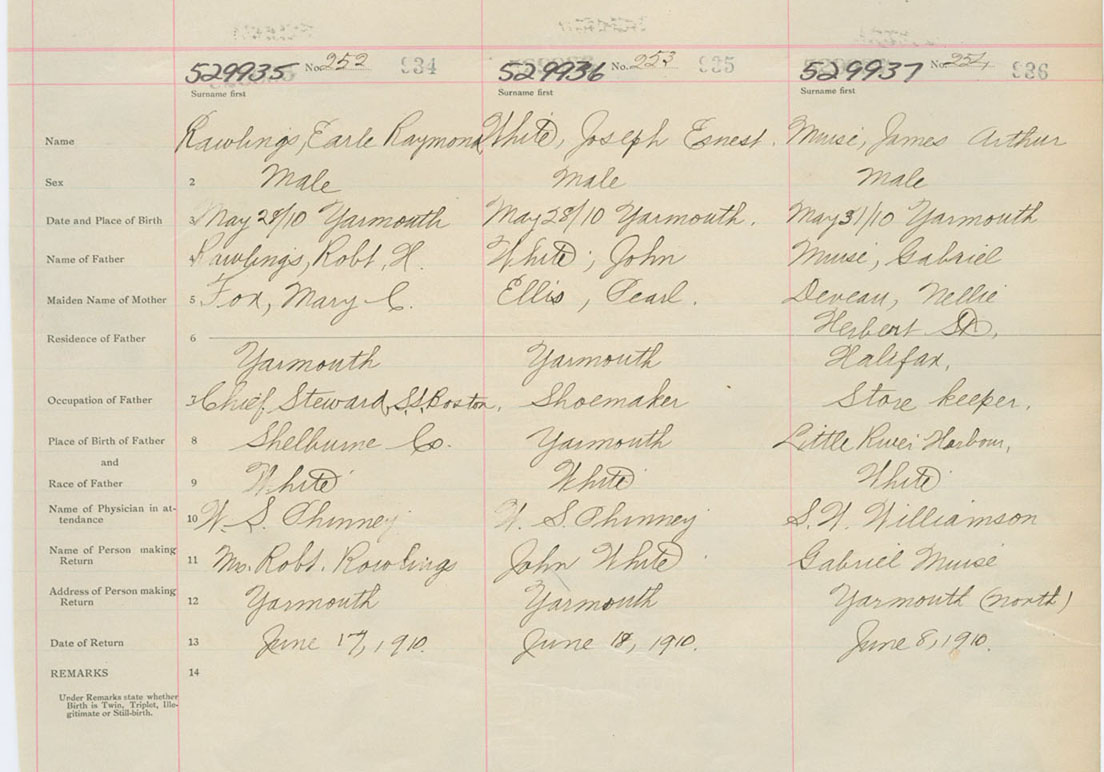 529935 No. 252 934 529936 No. 253 935 529937 No. 254 936
Surname first Surname first Surname first
Name Rawlings, Earle Raymond White, Joseph Ernest. Muise, James Arthur
Sex 2 Male Male Male
Date and Place of Birth 3 May 28/10 Yarmouth May 28/10 Yarmouth. May 31/10 Yarmouth
Name of Father 4 Rawlings, Robt. H. White, John Muise, Gabriel
Maiden Name of Mother 5 Fox, Mary C. Ellis, Pearl. Deveau, Nellie
Herbert St.,
Residence of Father 6 Yarmouth Yarmouth Halifax.
Occupation of Father 7 Chief Steward, SS. Boston. Shoemaker Store keeper.
Place of Birth of Father 8 Shelburne Co. Yarmouth Little River Harbour,
and
Race of Father 9 White White White
Name of Physician in at-
tendance 10 W. S. Phinney W. S. Phinney S. W. Williamson
Name of Person making
Return 11 Robt. Rawlings John White. Gabriel Muise
Address of Person making
Return 12 Yarmouth Yarmouth Yarmouth (North)
Date of Return 13 June 17, 1910. June 18, 1910. June 8, 1910.
REMARKS 14
Under Remarks state whether
Birth is Twin, Triplet, Ille-
gitimate or Still-birth.